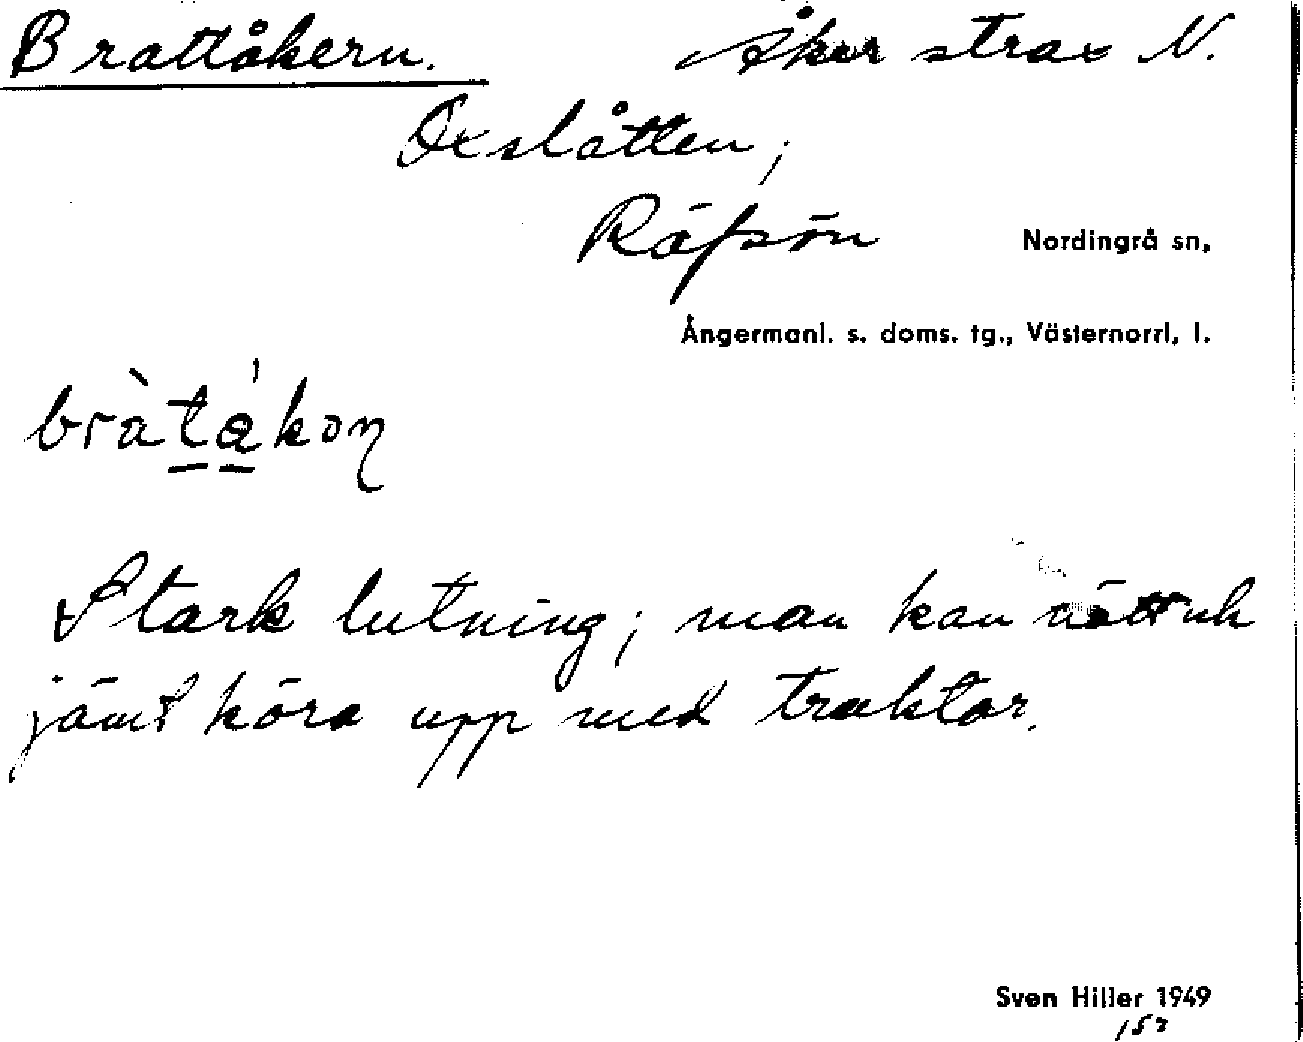 Brattåkern. Åker strax N.
Oxslåtten,
Räfsön Nordingrå sn,
Ångermanl. s. doms. tg., Västernorrl. l.
Stark lutning; man kan nätt och
jämt köra upp med traktor.
Sven Hiller 1949